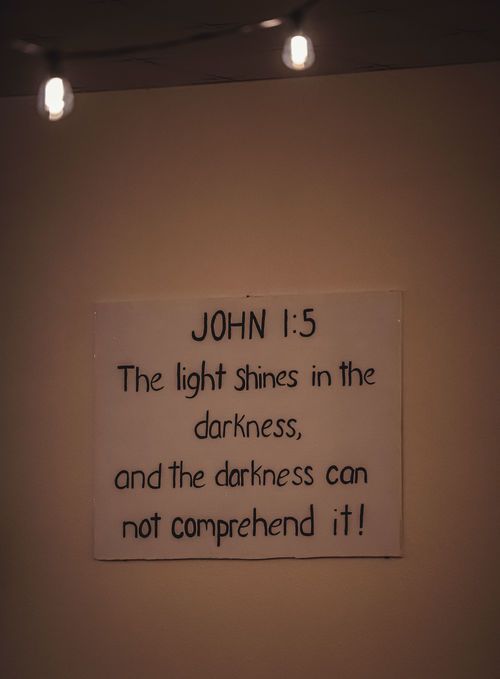 JOHN 1:5
The light shines in the
darkness,
and the darkness can
not comprehend it!